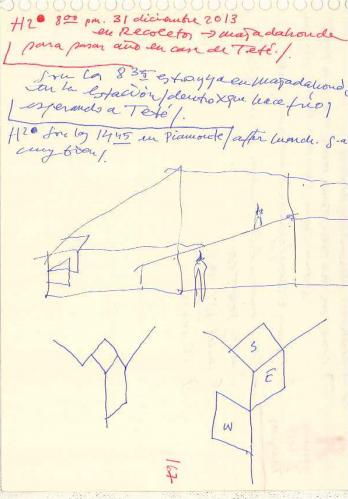 H2• 8⁰⁰ pm. 31 diciembre 2013
en Recoletos → majadahonda
para pasar año en casa de Teté/.
Son las 8 35 estoy ya en majadahonda
en la estación/dentro xque hace frío/
esperando a Teté/.
H2• Son las 14 45 en Piamonte/after
muy bien/.
S
E
W
167